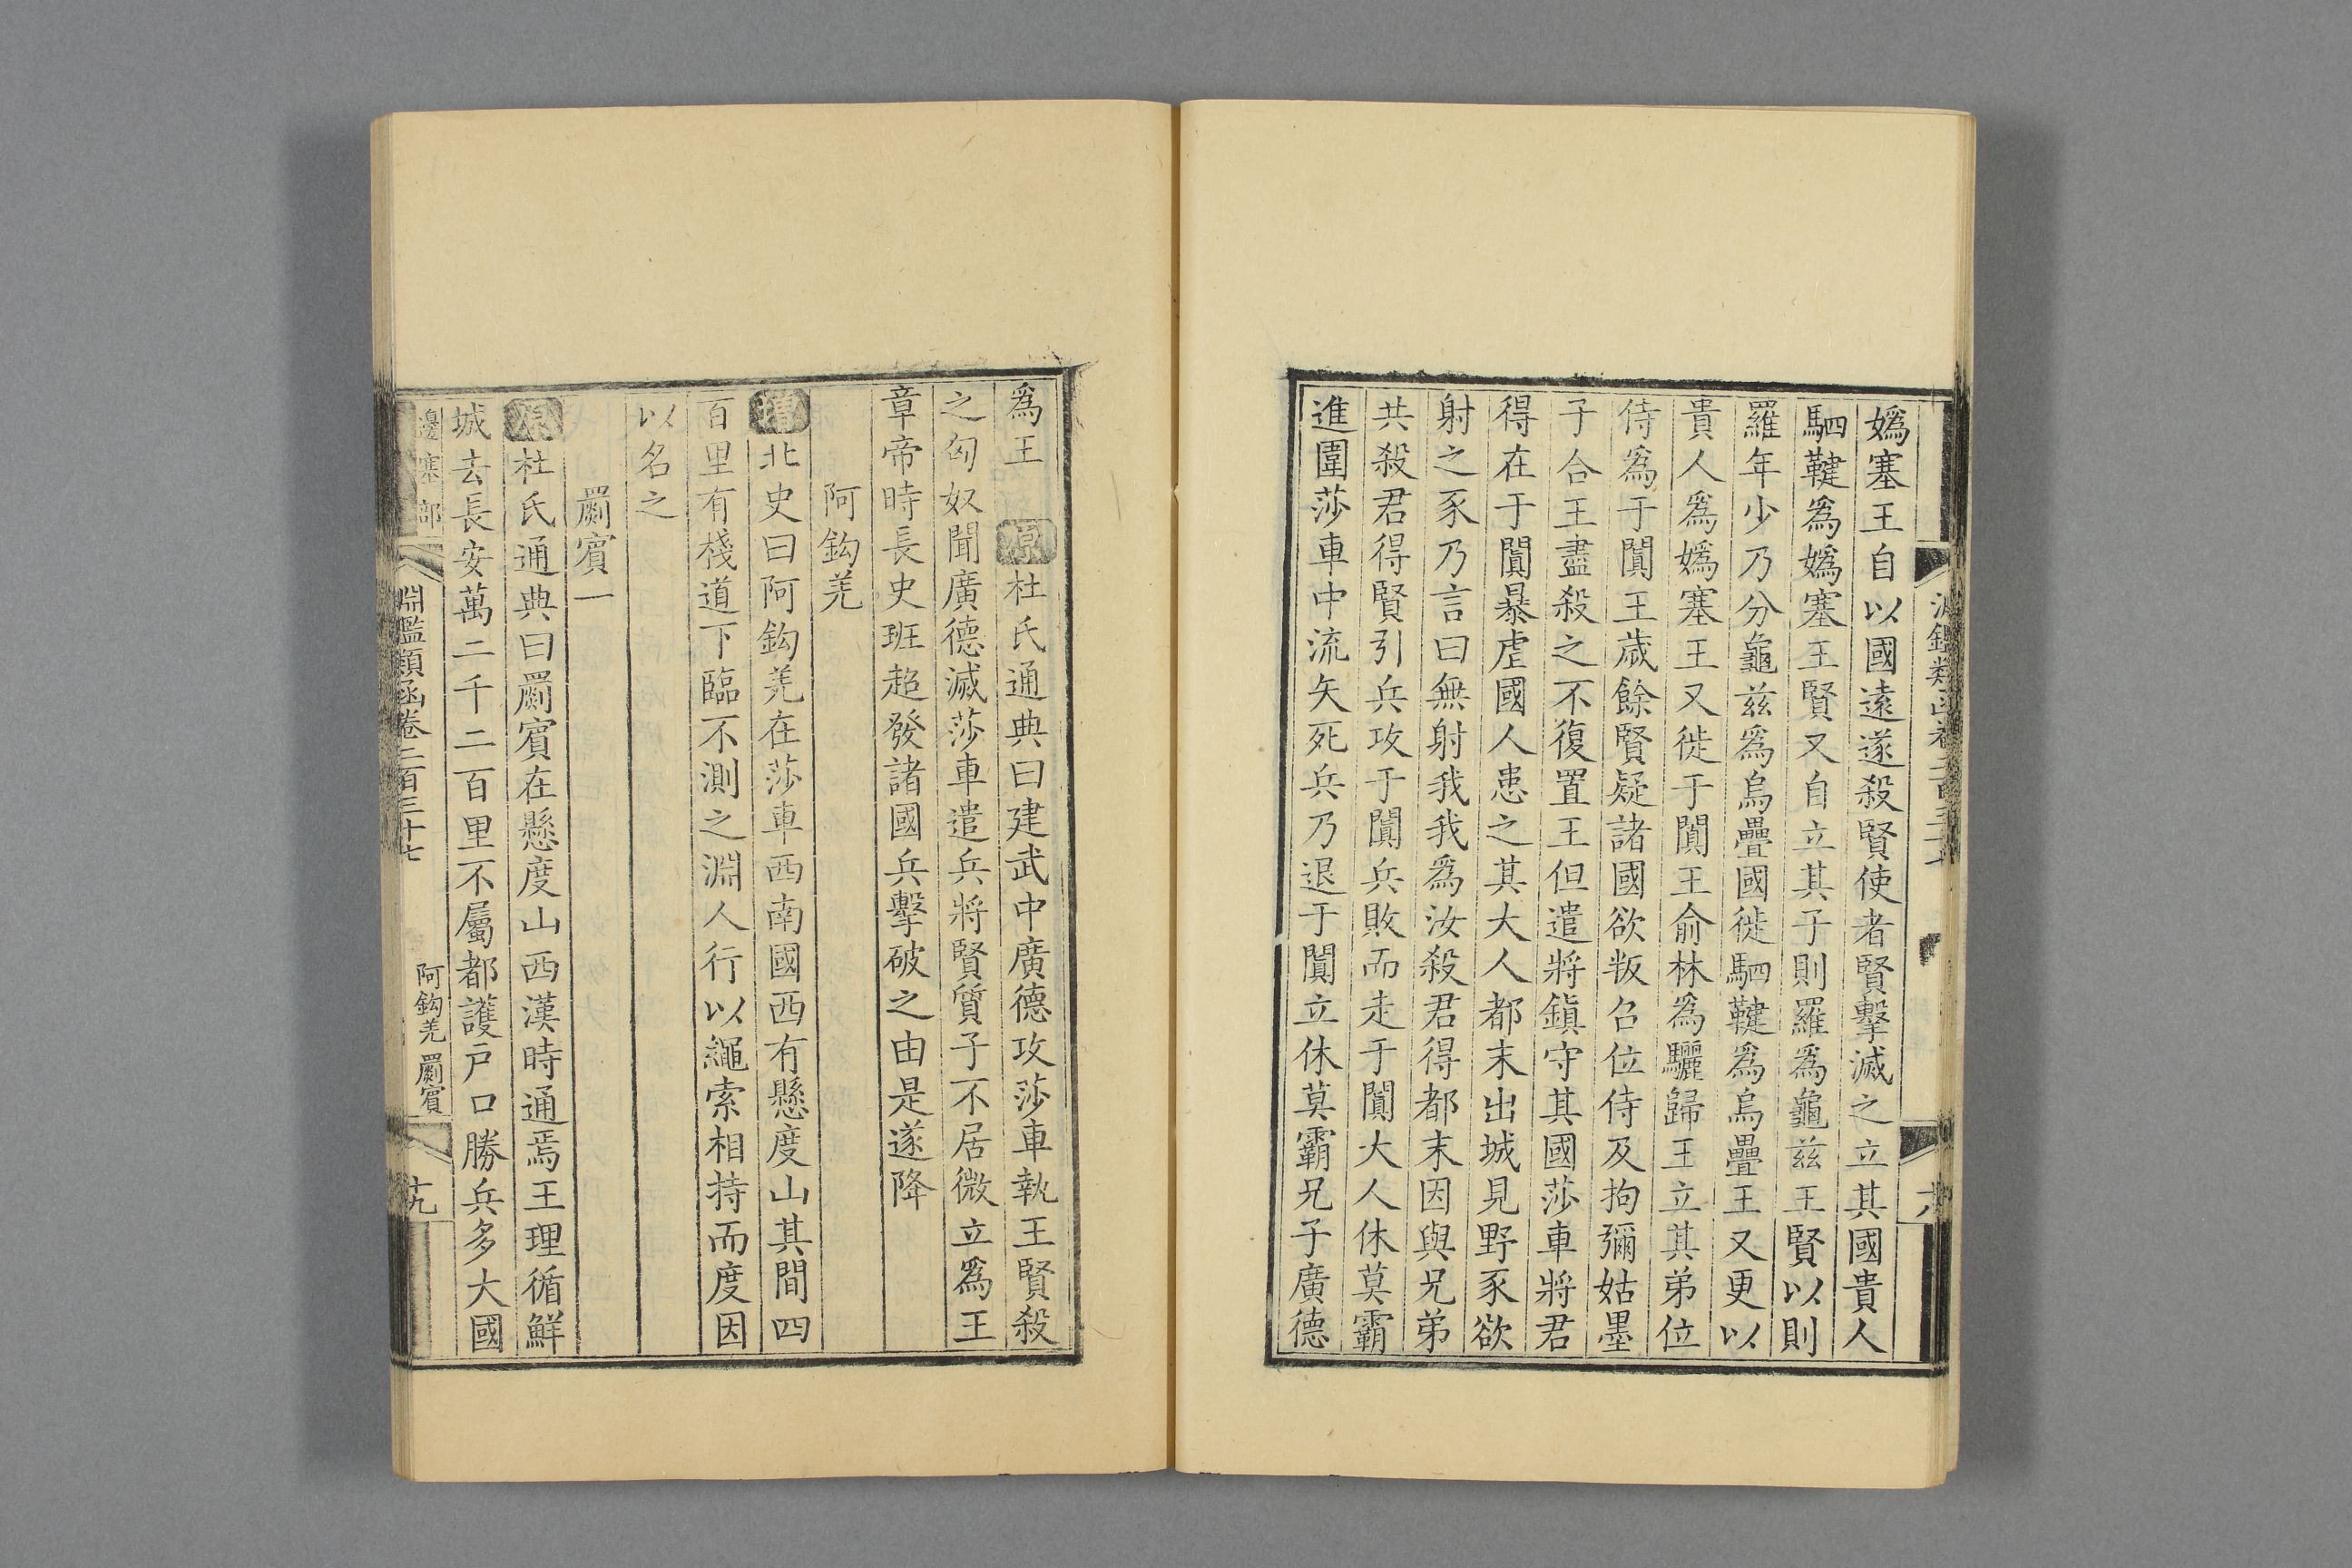 媯塞王自以國遠遂殺賢使者賢擊滅之立其國貴人
駟鞬爲媯塞王賢又自立其子則羅爲龜兹王賢以則
羅年少乃分龜兹爲烏疊國徙駟鞬爲烏疊王又更以
貴人爲媯塞王又徙于闐王俞林爲驪歸王立其弟位
侍爲于闐王歲餘賢疑諸國欲叛召位侍及拘彌姑墨
子合王盡殺之不復置王但遣將鎭守其國莎車將君
得在于闐暴虐國人患之其大人都末出城見野豕欲
射之豕乃言曰無射我我爲汝殺君得都末因與兄弟
共殺君得賢引兵攻于闐兵敗而走于闐大人休莫霸
進圍莎車中流矢死兵乃退于闐立休莫霸兄子廣德
爲王 原杜氏通典曰建武中廣德攻莎車執王賢殺
之匈奴聞廣德滅莎車遣兵將賢質子不居微立爲王
章帝時長史班超發諸國兵擊破之由是遂降
阿鈎羌
增北史曰阿鈎羌在莎車西南國西有懸度山其間四
百里有棧道下臨不測之淵人行以繩索相持而度因
以名之
罽賓一
原杜氏通典曰罽賓在懸度山西漢時通焉王理循鮮
城去長安萬二千二百里不屬都護戸口勝兵多大國
邊塞部
淵鑑類函卷二百三十七
阿鈎羌 罽賓
十九